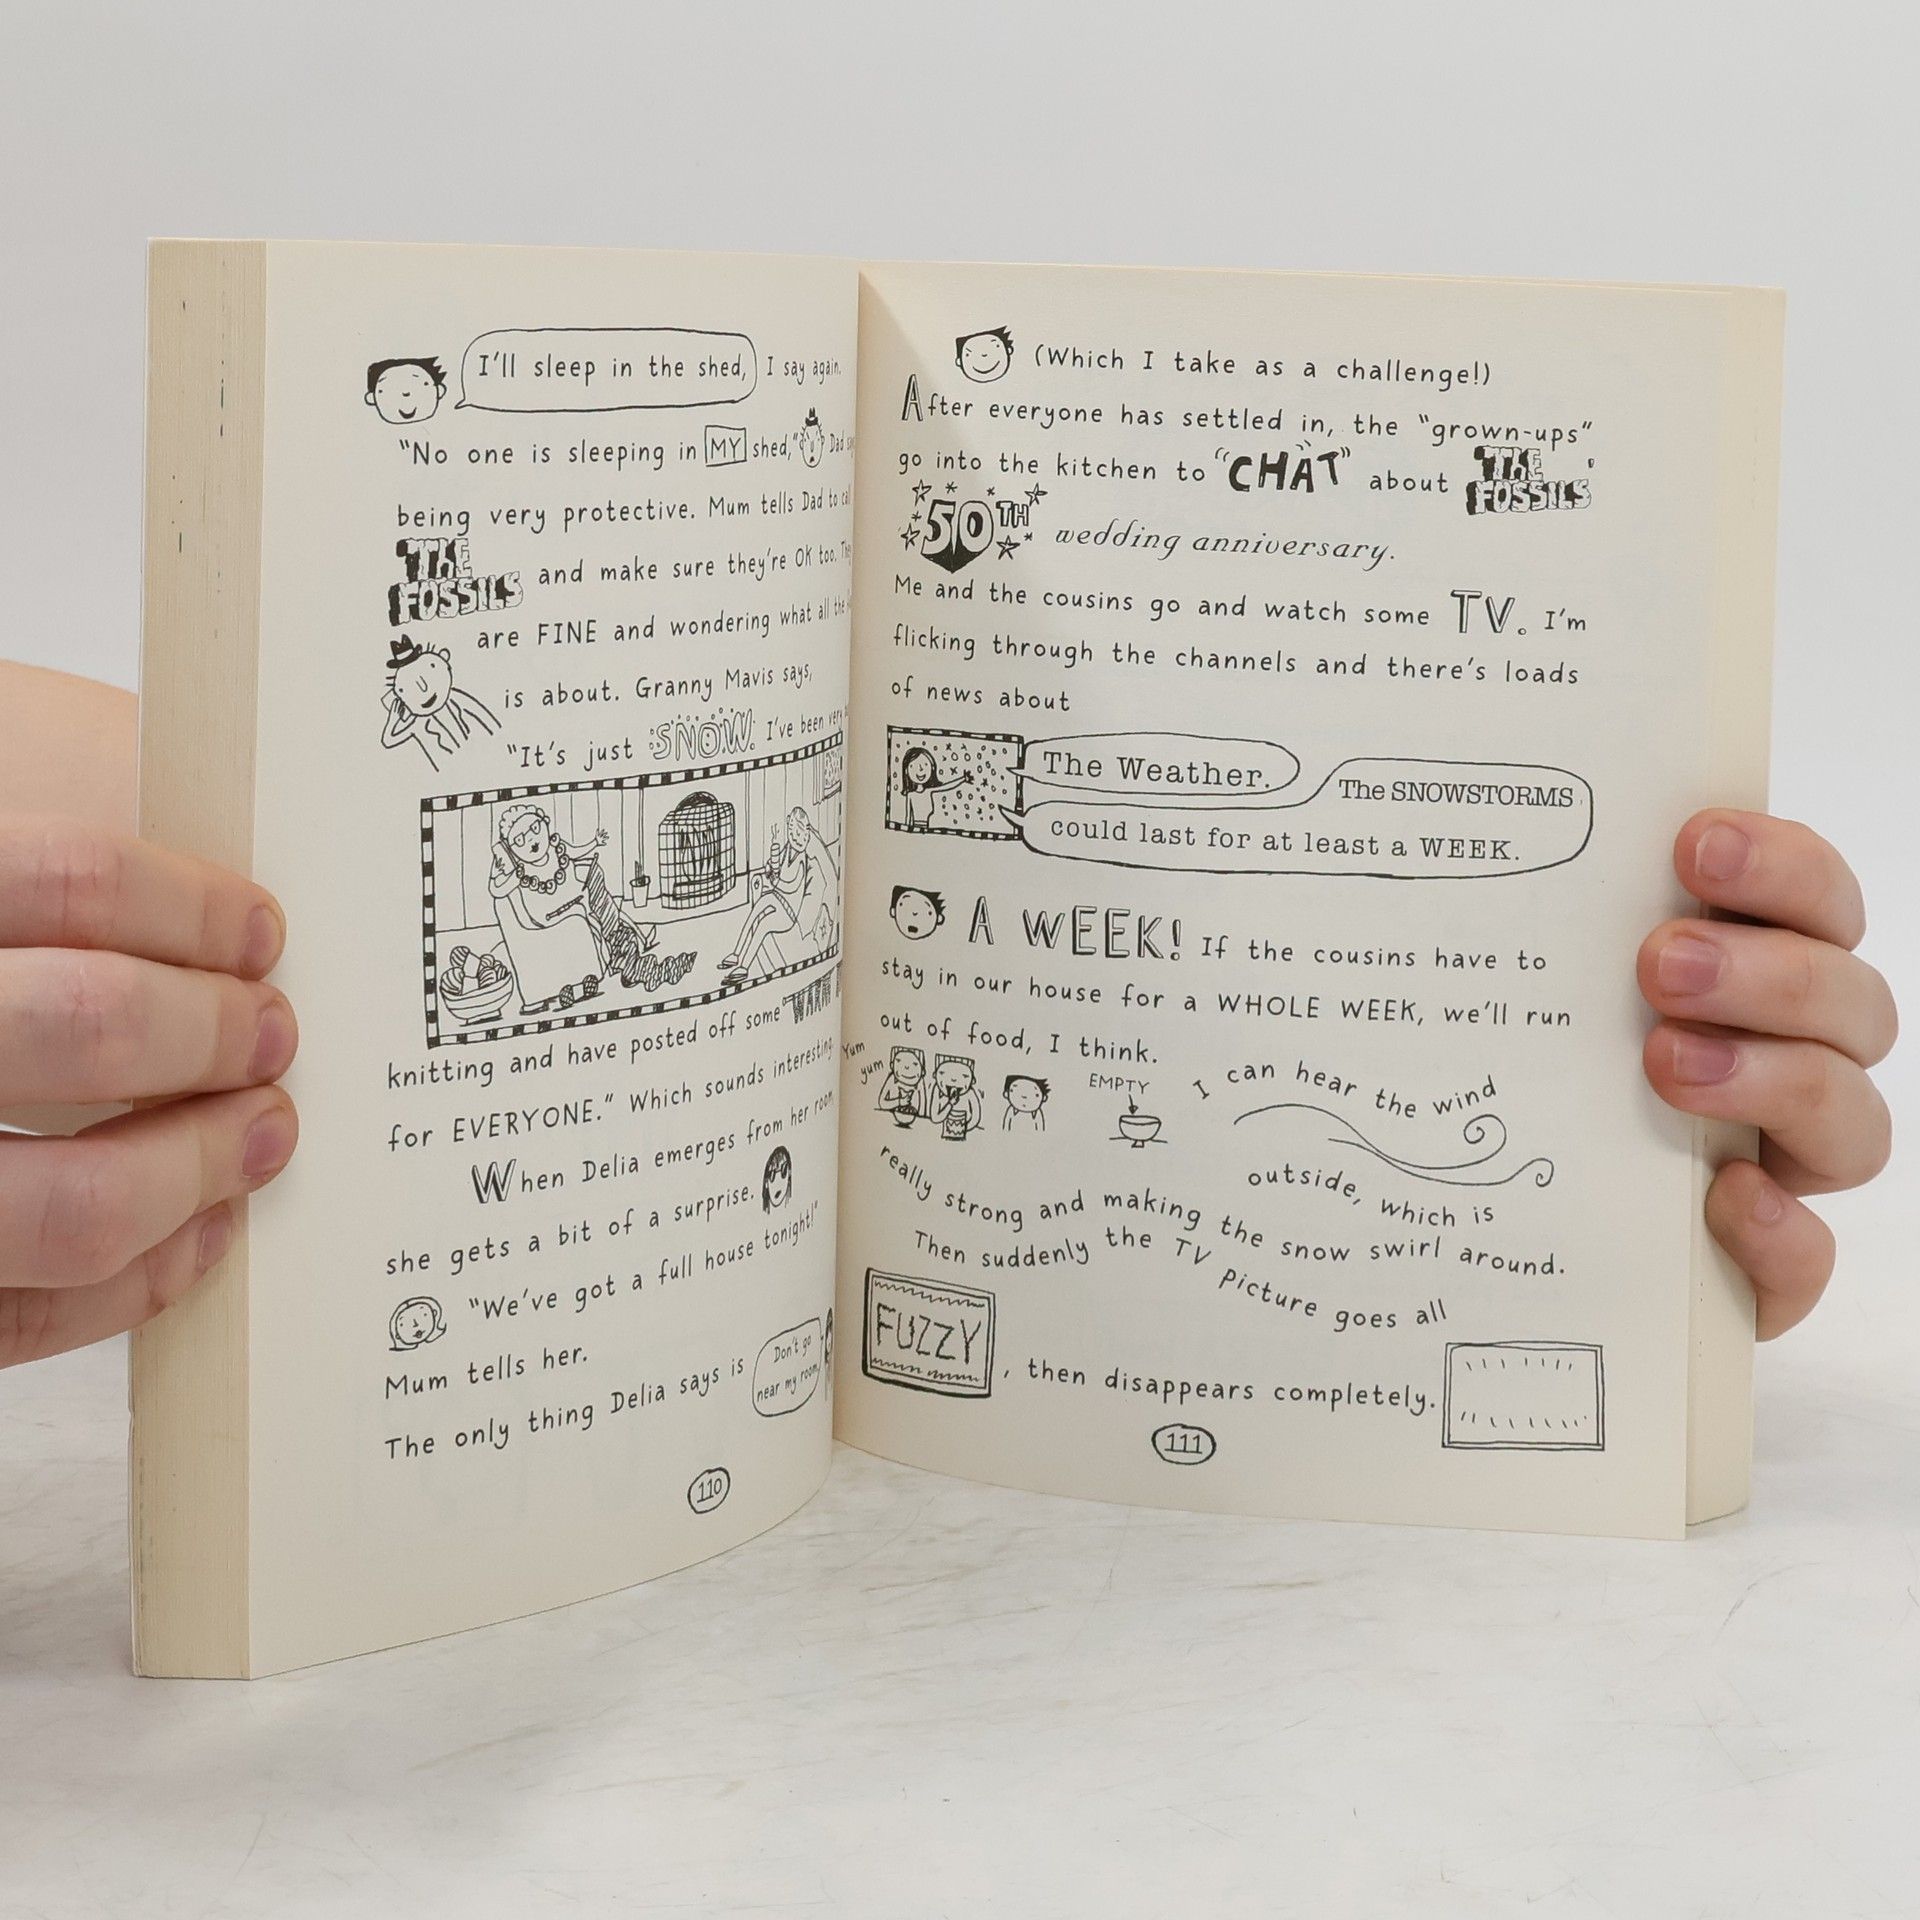 I'll sleep in the shed, I say again.
"No one is sleeping in MY shed," Dad
being very protective. Mum tells Dad to
THE FOSSILS and make sure they're OK too.
are FINE and wondering what all the
is about. Granny Mavis says,
"It's just SNOW. I've been very
knitting and have posted off some WARM
for EVERYONE." Which sounds interesting.
When Delia emerges from her room,
she gets a bit of a surprise.
"We've got a full house tonight!"
Mum tells her.
The only thing Delia says is Don't go
near my room
110
(Which I take as a challenge!)
After everyone has settled in, the "grown-ups"
go into the kitchen to "CHAT" about THE FOSSILS'
50TH wedding anniversary.
Me and the cousins go and watch some TV. I'm
flicking through the channels and there's loads
of news about
The Weather.
The SNOWSTORMS
could last for at least a WEEK.
A WEEK! If the cousins have to
stay in our house for a WHOLE WEEK, we'll run
out of food, I think.
Yum
yum
EMPTY
I can hear the wind
outside, which is
really strong and making the snow swirl around.
Then suddenly the TV picture goes all
FUZZY, then disappears completely.
111